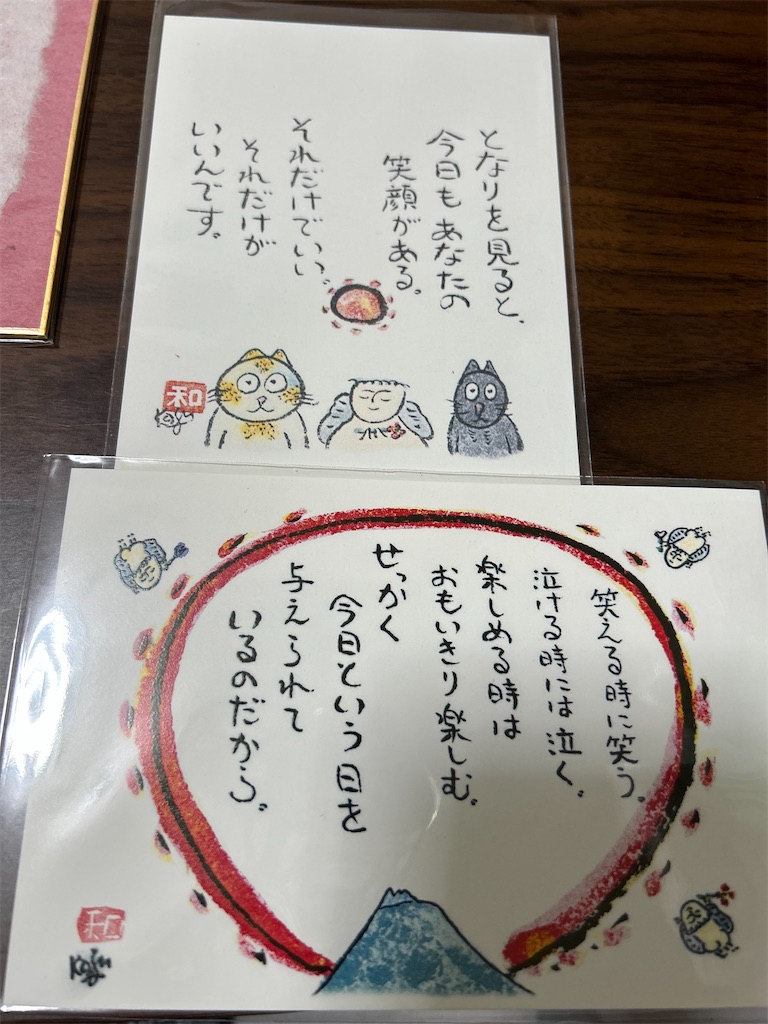 となりを見ると、
今日もあなたの
笑顔がある。
それだけでいい、
それだけが
いいんです。
和
笑える時に笑う。
泣ける時には泣く。
楽しめる時は
おもいきり楽しむ。
せっかく
今日という日を
与えられて
いるのだから。
和